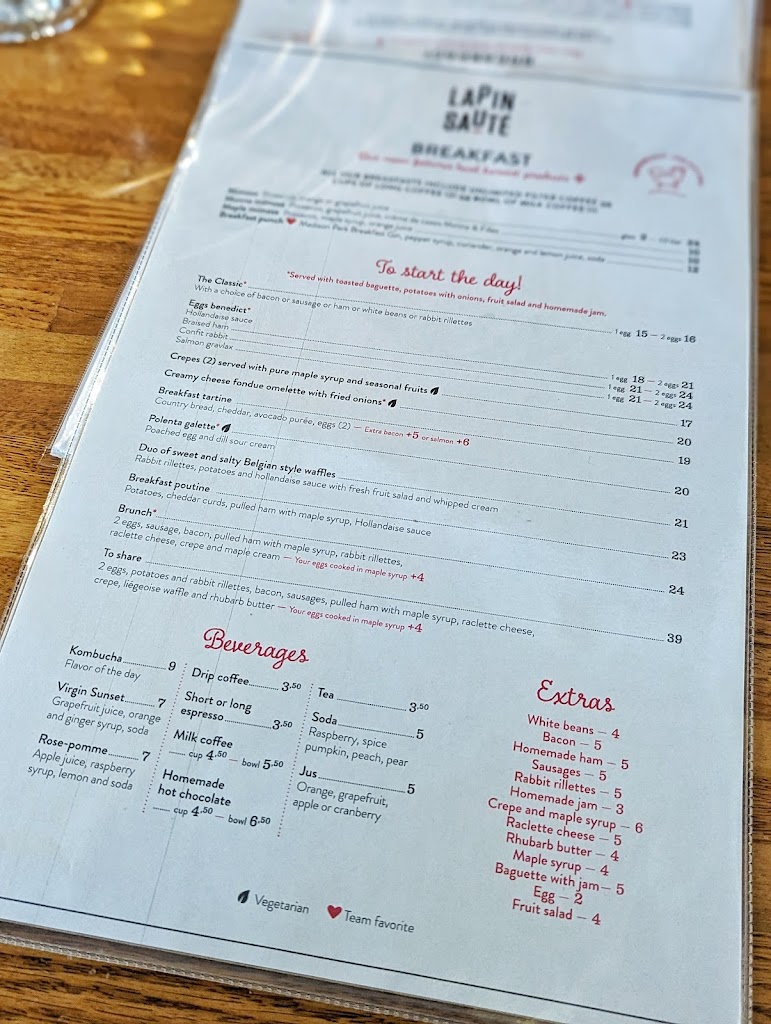 LAPIN
SAUTÉ
BREAKFAST
ALL OUR BREAKFASTS INCLUDE UNLIMITED FILTER COFFEE OR
Mimosa
Breakfast punch ♥ Madison Park Breakfast Gin, pepper syrup, coriander, orange and lemon juice, soda
To start the day!
*Served with toasted baguette, potatoes with onions, fruit salad and homemade jam.
The Classic* 1 egg 15 — 2 eggs 16
With a choice of bacon or sausage or ham or white beans or rabbit rillettes
Eggs benedict*
Hollandaise sauce
Braised ham 1 egg 18 — 2 eggs 21
Confit rabbit 1 egg 21 — 2 eggs 24
Salmon gravlax 1 egg 21 — 2 eggs 24
Crepes (2) served with pure maple syrup and seasonal fruits 17
Creamy cheese fondue omelette with fried onions* 20
Breakfast tartine 19
Country bread, cheddar, avocado purée, eggs (2) — Extra bacon +5 or salmon +6
Polenta galette* 20
Poached egg and dill sour cream
Duo of sweet and salty Belgian style waffles 21
Rabbit rillettes, potatoes and hollandaise sauce with fresh fruit salad and whipped cream
Breakfast poutine 23
Potatoes, cheddar curds, pulled ham with maple syrup, Hollandaise sauce
Brunch* 24
2 eggs, sausage, bacon, pulled ham with maple syrup, rabbit rillettes,
raclette cheese, crepe and maple cream — Your eggs cooked in maple syrup +4
To share 39
2 eggs, potatoes and rabbit rillettes, bacon, sausages, pulled ham with maple syrup, raclette cheese,
crepe, liégeoise waffle and rhubarb butter — Your eggs cooked in maple syrup +4
Beverages
Kombucha 9
Flavor of the day
Virgin Sunset 7
Grapefruit juice, orange
and ginger syrup, soda
Rose-pomme 7
Apple juice, raspberry
syrup, lemon and soda
Drip coffee 3.50
Short or long
espresso 3.50
Milk coffee
cup 4.50 — bowl 5.50
Homemade
hot chocolate
cup 4.50 — bowl 6.50
Tea 3.50
Soda 5
Raspberry, spice
pumpkin, peach, pear
Jus 5
Orange, grapefruit,
apple or cranberry
Extras
White beans — 4
Bacon — 5
Homemade ham — 5
Sausages — 5
Rabbit rillettes — 5
Homemade jam — 3
Crepe and maple syrup — 6
Raclette cheese — 5
Rhubarb butter — 4
Maple syrup — 4
Baguette with jam — 5
Egg — 2
Fruit salad — 4
Vegetarian ♥ Team favorite